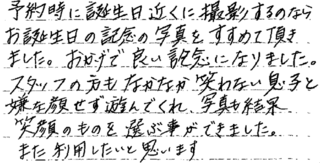 予約時に誕生日近くに撮影するのなら
お誕生日の記念の写真をすすめて頂き
ました。おかげで良い記念になりました。
スタッフの方もなかなか笑わない息子と
嫌な顔せず遊んでくれ、写真も結果
笑顔のものを選ぶ事ができました。
また利用したいと思います